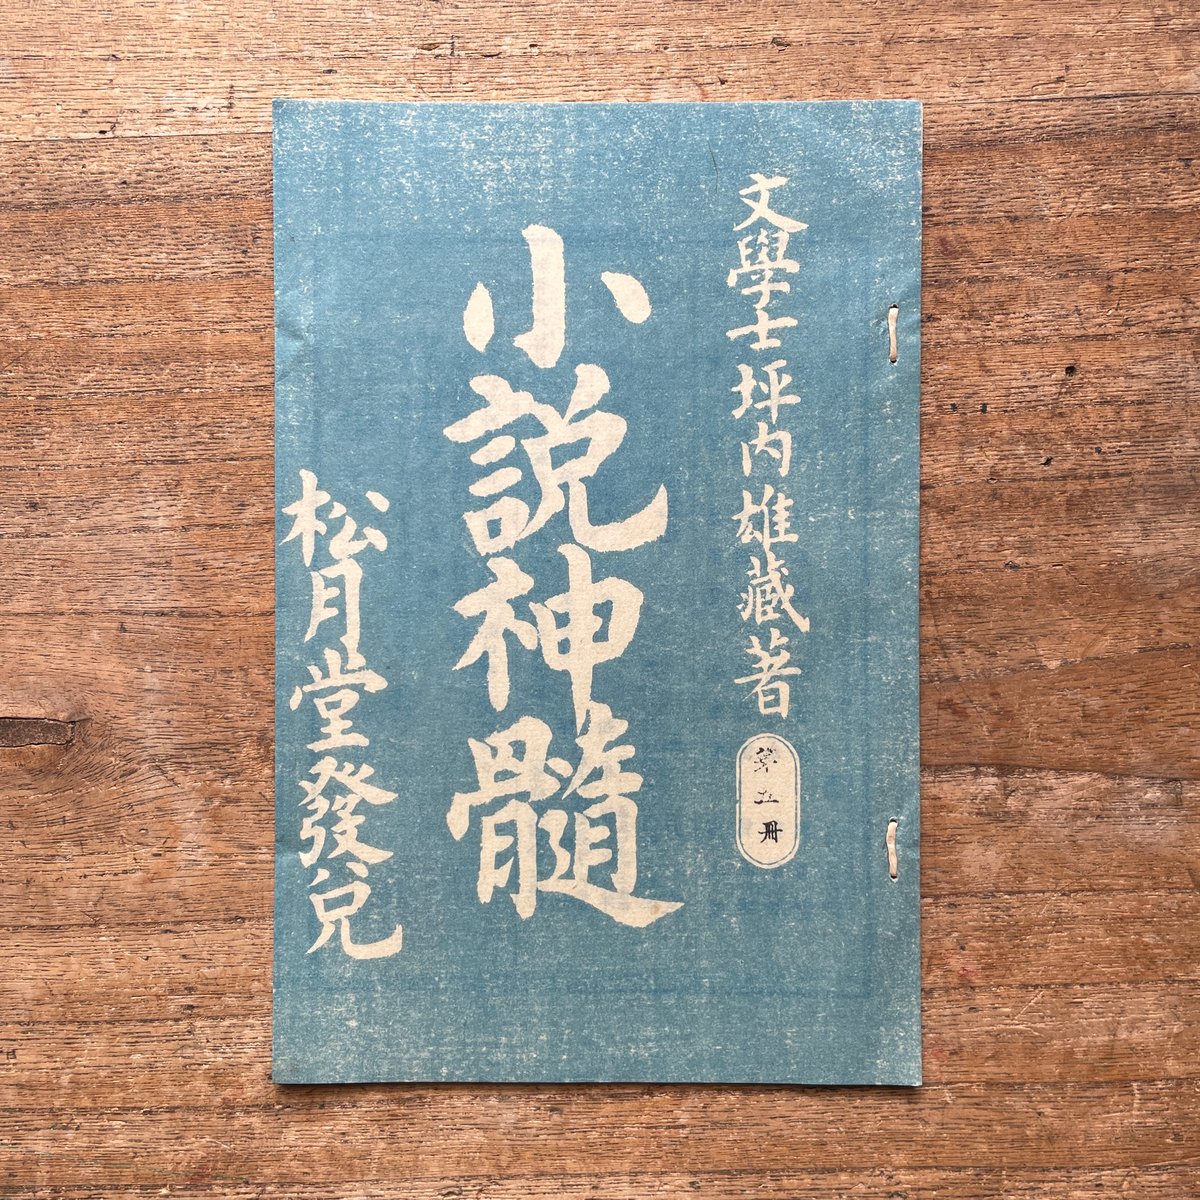 文學士坪内雄藏著
第五冊
小説神髓
松月堂發兌